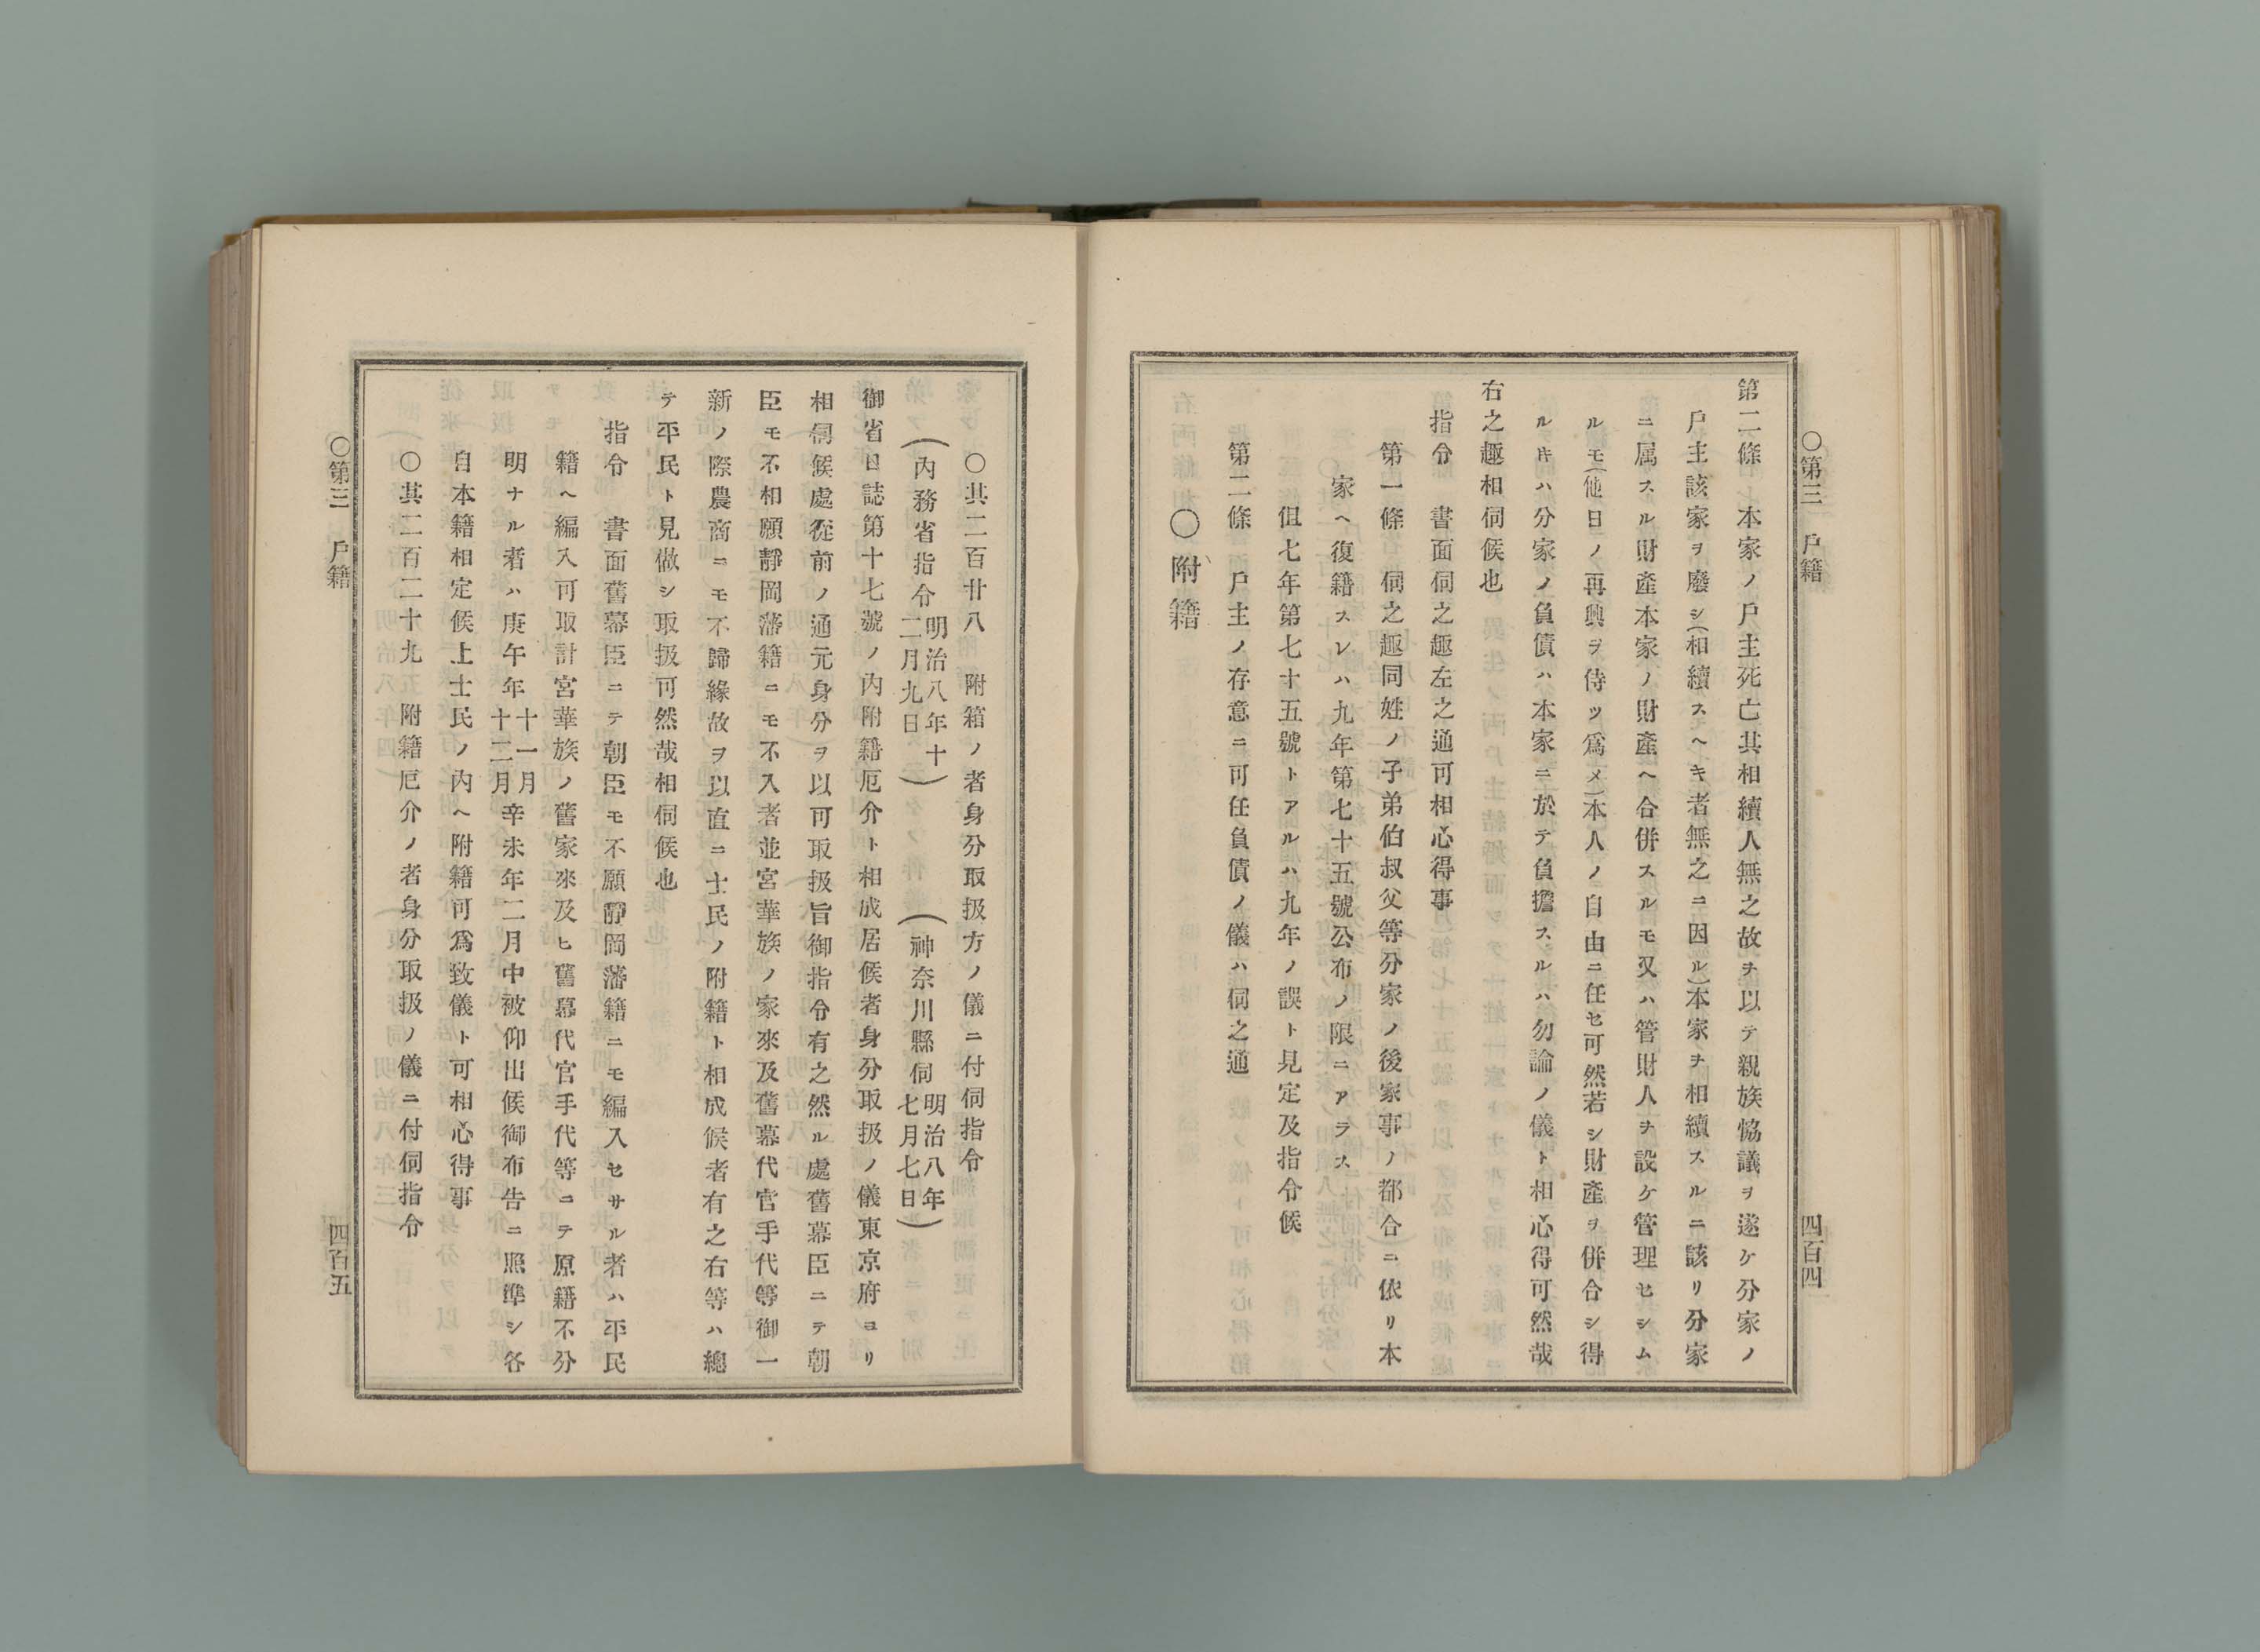 ○第三　戶籍　四百四
第二條　本家ノ戶主死亡其相續人無之故ヲ以テ親族恊議ヲ遂ケ分家ノ
戶主該家ヲ廢シ(相續スヘキ者無之ニ因ル)本家ヲ相續スルニ該リ分家
ニ属スル財產本家ノ財產ヘ合併スルモ又ハ管財人ヲ設ケ管理セシム
ルモ(他日ノ再興ヲ侍ツ爲メ)本人ノ自由ニ任セ可然若シ財產ヲ併合シ得
ルキハ分家ノ負債ハ本家ニ於テ負擔スルハ勿論ノ儀ト相心得可然哉
右之趣相伺候也
指令　書面伺之趣左之通可相心得事
第一條　伺之趣同姓ノ子弟伯叔父等分家ノ後家事ノ都合ニ依リ本
家ヘ復籍スレハ九年第七十五號公布ノ限ニアラス
但七年第七十五號トアルハ九年ノ誤ト見定及指令候
第二條　戶主ノ存意ニ可任負債ノ儀ハ伺之通
○附籍
○其二百廿八　附籍ノ者身分取扱方ノ儀ニ付伺指令
(內務省指令明治八年十二月九日)　(神奈川縣伺明治八年七月七日)
御省日誌第十七號ノ內附籍厄介ト相成居候者身分取扱ノ儀東京府ヨリ
相伺候處從前ノ通元身分ヲ以可取扱旨御指令有之然ル處舊幕臣ニテ朝
臣モ不相願靜岡藩籍ニモ不入者並宮華族ノ家來及舊幕代官手代等御一
新ノ際農商ニモ不歸緣故ヲ以直ニ士民ノ附籍ト相成候者有之右等ハ總
テ平民ト見做シ取扱可然哉相伺候也
指令　書面舊幕臣ニテ朝臣モ不願靜岡藩籍ニモ編入セサル者ハ平民
籍ヘ編入可取計宮華族ノ舊家來及ヒ舊幕代官手代等ニテ原籍不分
明ナル者ハ庚午年十一月十二月辛未年二月中被仰出候御布告ニ照準シ各
自本籍相定候上士民ノ內ヘ附籍可爲致儀ト可相心得事
○其二百二十九　附籍厄介ノ者身分取扱ノ儀ニ付伺指令
○第三　戶籍　四百五